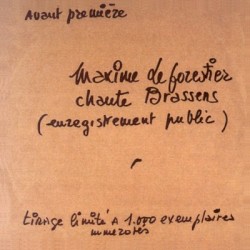 Avant première
Maxime Le forestier
chante Brassens
(enregistrement public)
tirage limité à 1.000 exemplaires
numerotés